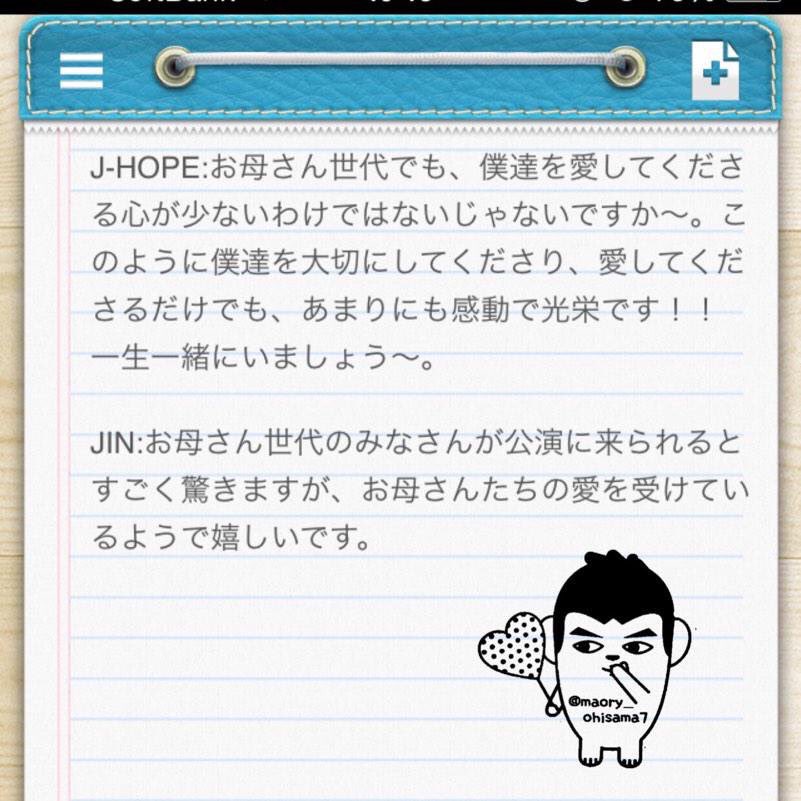 J-HOPE:お母さん世代でも、僕達を愛してくださ
る心が少ないわけではないじゃないですか〜。こ
のように僕達を大切にしてくださり、愛してくだ
さるだけでも、あまりにも感動で光栄です！！
一生一緒にいましょう〜。
JIN:お母さん世代のみなさんが公演に来られると
すごく驚きますが、お母さんたちの愛を受けてい
るようで嬉しいです。
@maory_
ohisama7